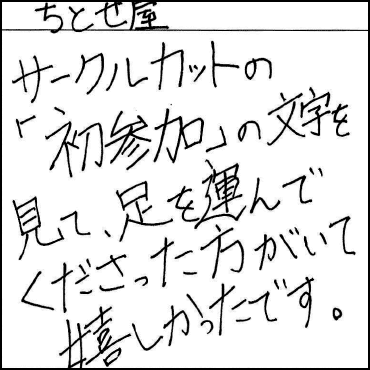 ちとせ屋
サークルカットの
「初参加」の文字を
見て、足を運んで
くださった方がいて
嬉しかったです。